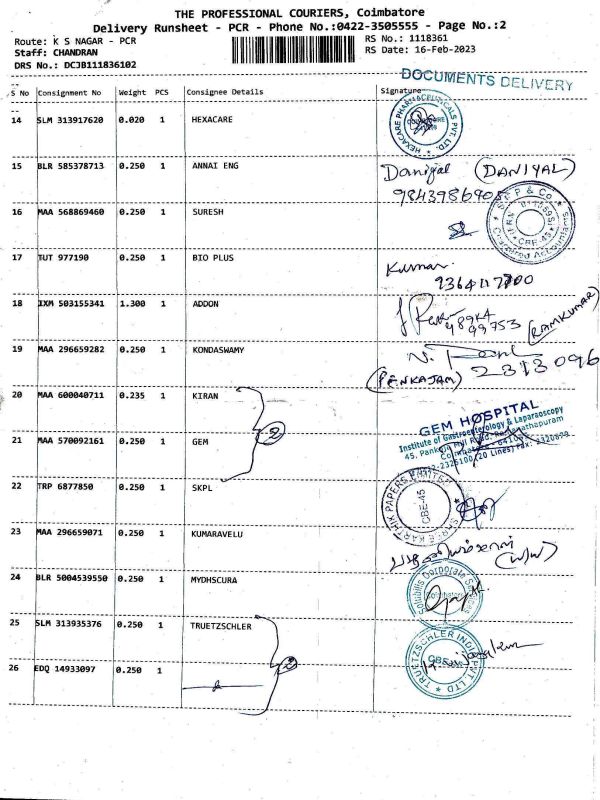 THE PROFESSIONAL COURIERS, Coimbatore
Delivery Runsheet - PCR - Phone No.:0422-3505555 - Page No.:2
Route: K S NAGAR - PCR
RS No.: 1118361
Staff: CHANDRAN
RS Date: 16-Feb-2023
DRS No.: DCJB111836102
DOCUMENTS DELIVERY
S No Consignment No Weight PCS Consignee Details Signature
14 SLM 313917620 0.020 1 HEXACARE
HEXACARE PHARMACEUTICALS PVT. LTD.
15 BLR 585378713 0.250 1 ANNAI ENG
Daniyal (DANIYAL)
16 MAA 568869460 0.250 1 SURESH
& Co.
CBE-45
Chartered Accountants
17 TUT 977190 0.250 1 BIO PLUS
Kumar
18 IXM 503155341 1.300 1 ADDON
99753 (RAMKUMAR)
19 MAA 296659282 0.250 1 KONDASWAMY
(PENKAJAM) 2313096
20 MAA 600040711 0.235 1 KIRAN
2
GEM HOSPITAL
Institute of Gastroenterology & Laparaoscopy
45, Pankaja Mill Road, Ramanathapuram
21 MAA 570092161 0.250 1 GEM
(20 Lines) Fax: 2320879
22 TRP 6877850 0.250 1 SKPL
SHREE KARTHIK PAPERS LIMITED
CBE-45
23 MAA 296659071 0.250 1 KUMARAVELU
(w/w)
24 BLR 5004539550 0.250 1 MYDHSCURA
Corporate
Coimbatore
25 SLM 313935376 0.250 1 TRUETZSCHLER
2
TRUETZSCHLER INDIA PVT LTD
26 EDQ 14933097 0.250 1